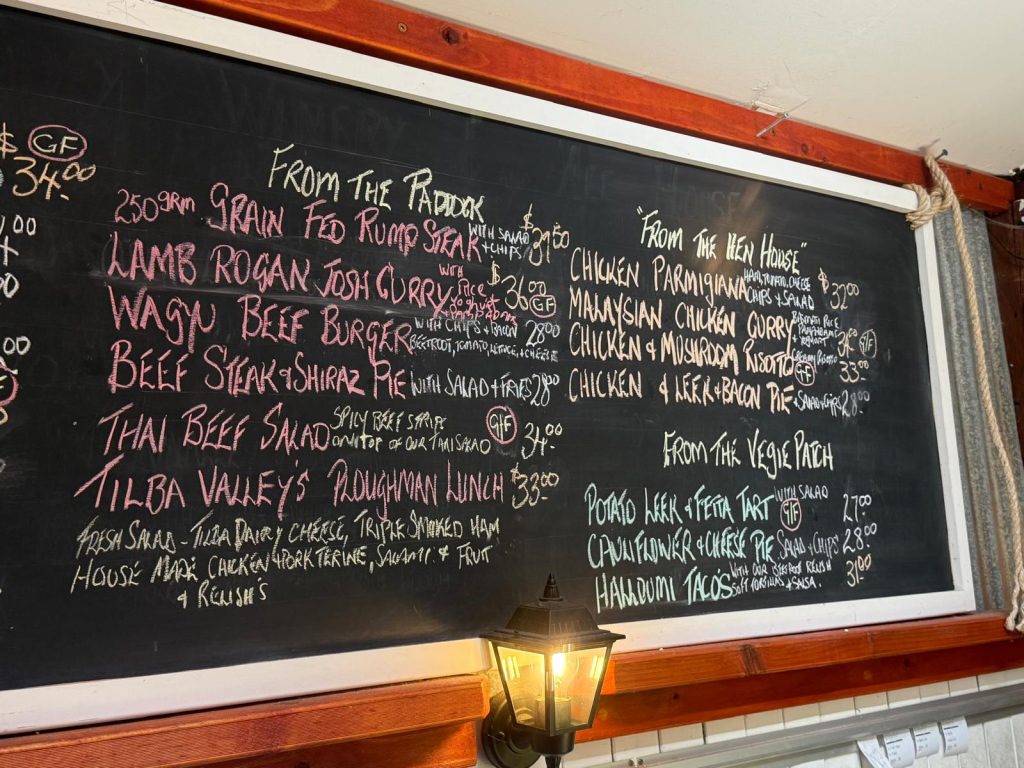 $ GF
34.00
FROM THE PADDOCK
250grm GRAIN FED RUMP STEAK WITH SALAD + CHIPS
LAMB ROGAN JOSH CURRY WITH RICE $36.00 GF
WAGYU BEEF BURGER WITH CHIPS + BACON BEETROOT, TOMATO, LETTUCE, + CHEESE 28.00
BEEF STEAK & SHIRAZ PIE WITH SALAD + FRIES 28.00
THAI BEEF SALAD SPICY BEEF STRIPS ON TOP OF OUR THAI SALAD GF 34.00
TILBA VALLEY'S PLOUGHMAN LUNCH $33.00
FRESH SALAD - TILBA DAIRY CHEESE, TRIPLE SMOKED HAM
HOUSE MADE CHICKEN + PORK TERINE, SALAMI & FRUIT
& RELISH'S
"FROM THE HEN HOUSE"
CHICKEN PARMIGIANA HAM, TOMATO, CHEESE CHIPS & SALAD $32.00
MALAYSIAN CHICKEN CURRY BASMATI RICE PAPPADAMS & YOGHURT 34.00 GF
CHICKEN & MUSHROOM RISOTTO CREAMY RISOTTO GF 33.00
CHICKEN & LEEK & BACON PIE + SALAD + CHIPS 28.00
FROM THE VEGIE PATCH
POTATO LEEK & FETTA TART WITH SALAD GF 27.00
CAULIFLOWER & CHEESE PIE SALAD & CHIPS 28.00
HALLOUMI TACO'S WITH OUR BEETROOT RELISH SOFT TORTILLAS & SALSA. 31.00